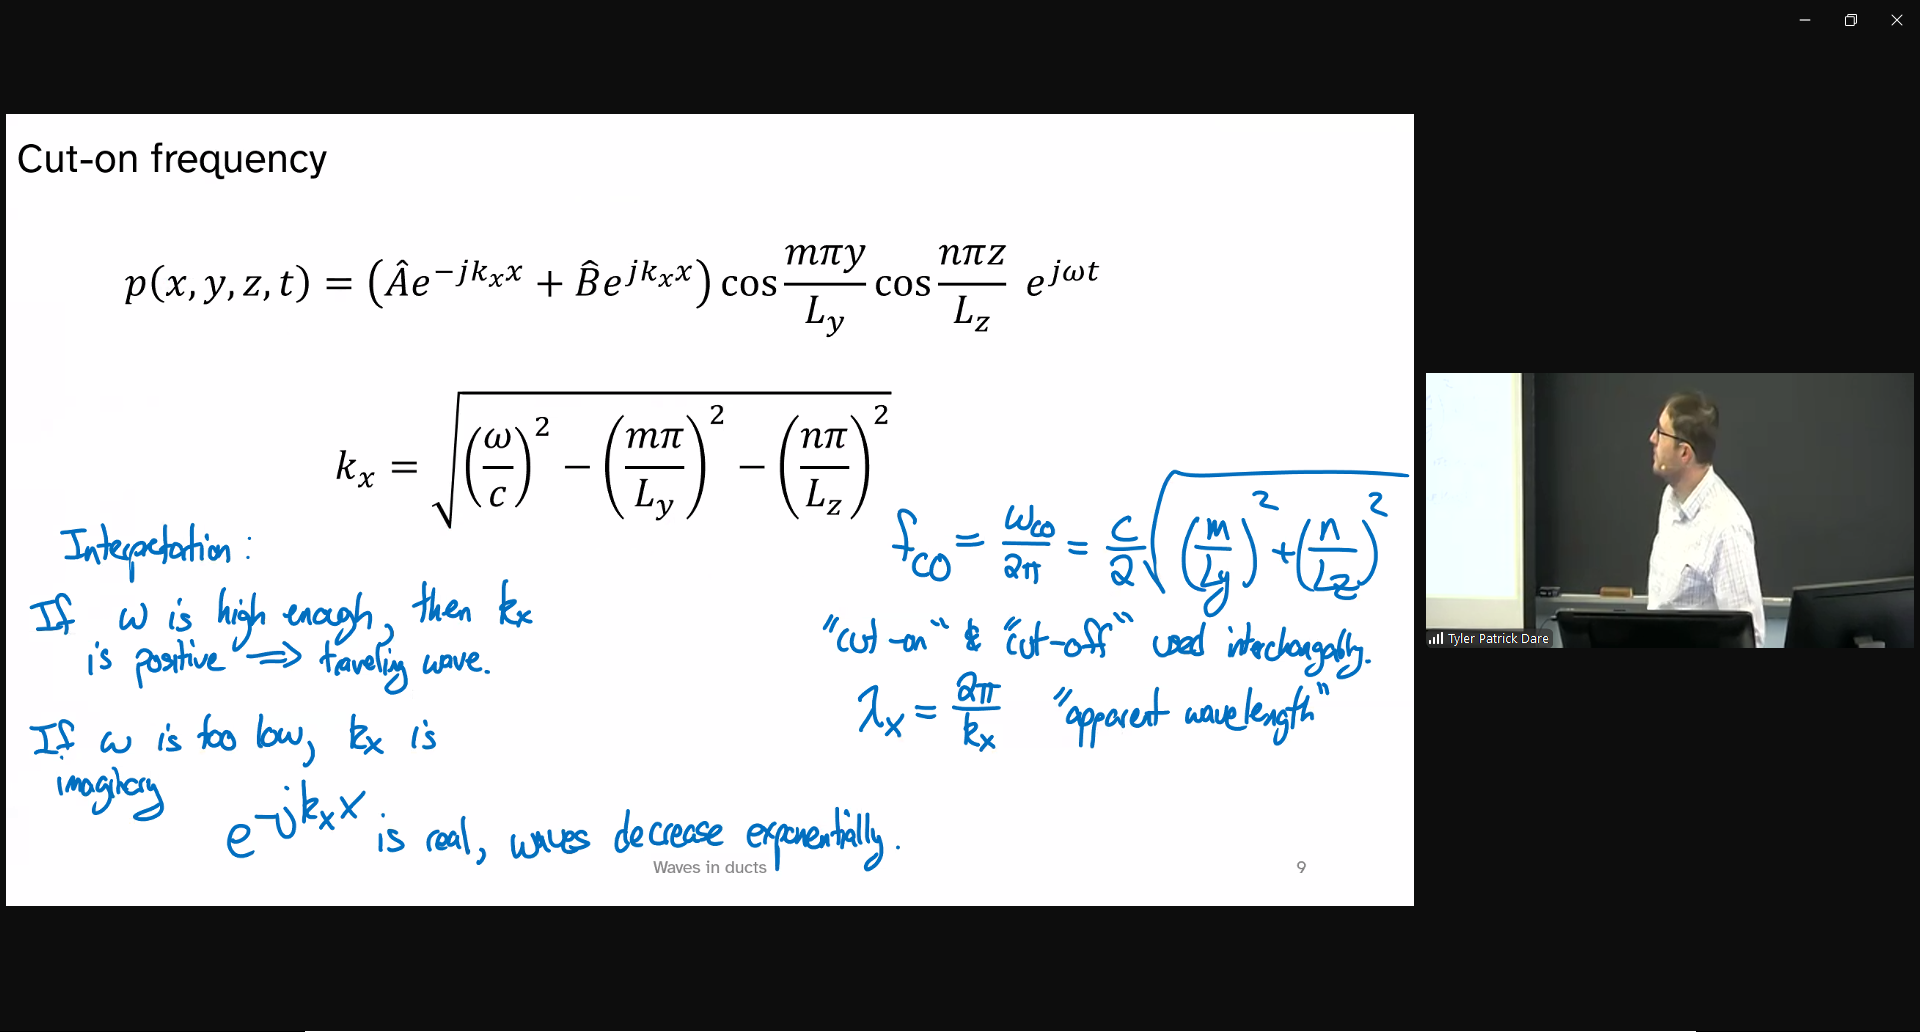 Cut-on frequency
p(x, y, z, t) = (Âe^{-jk_x x} + B̂e^{jk_x x}) cos \frac{mπy}{L_y} cos \frac{nπz}{L_z} e^{jωt}
k_x = \sqrt{(\frac{ω}{c})^2 − (\frac{mπ}{L_y})^2 − (\frac{nπ}{L_z})^2}
Interpretation:
If ω is high enough, then k_x
is positive ⟹ traveling wave.
If ω is too low, k_x is
imaginary
e^{-jk_x x} is real, waves decrease exponentially.
f_{CO} = \frac{ω_{CO}}{2π} = \frac{c}{2} \sqrt{(\frac{m}{Ly})^2 + (\frac{n}{Lz})^2}
"cut-on" & "cut-off" used interchangably.
λ_x = \frac{2π}{k_x} "apparent wavelength"
Waves in ducts
9
Tyler Patrick Dare